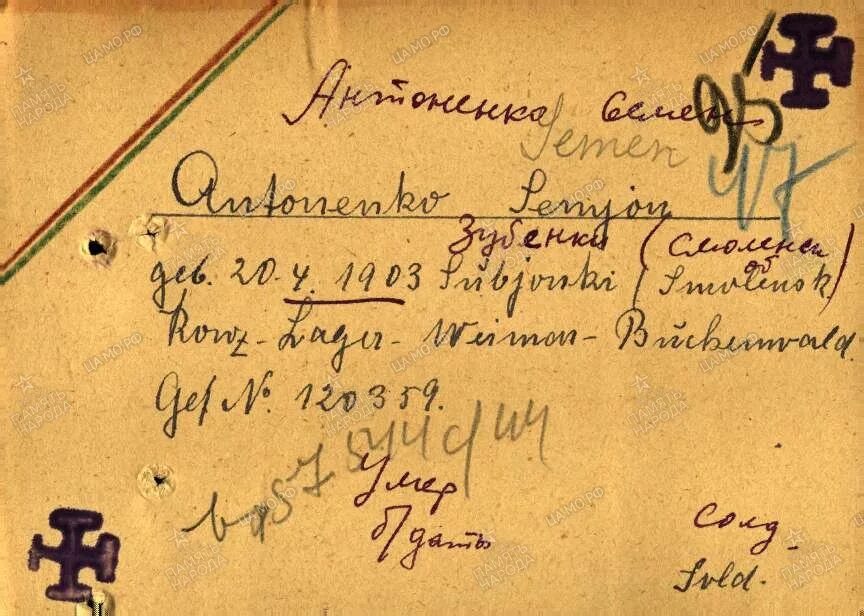 Антоненко Семен
Semen
95
47
Antonenko Semjon
Зубенки (Смоленск
об
geb. 20.4.1903 Subjonki (Smolensk)
Konz-Lager-Weimar-Buckenwald.
Gef № 120359.
Умер
б/даты
солд.
Sold.